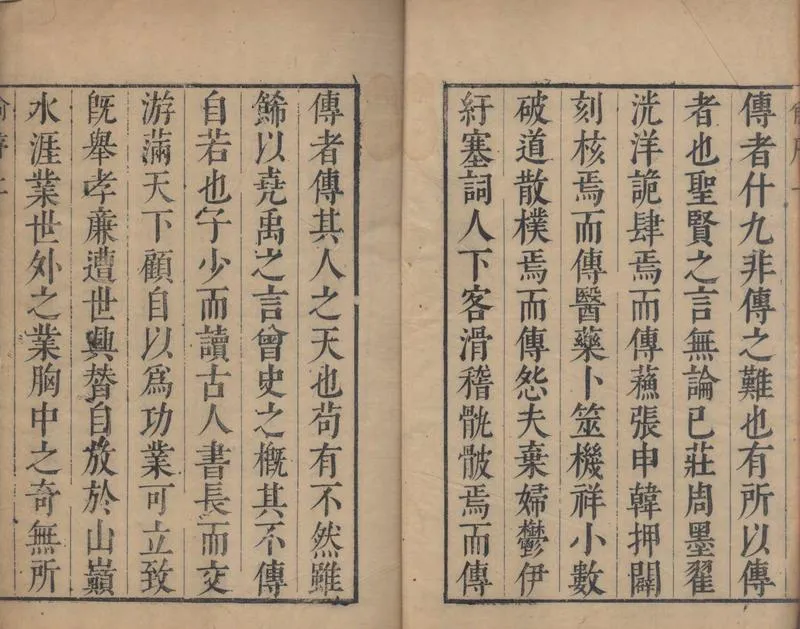 傳者什九非傳之難也有所以傳
者也聖賢之言無論已莊周墨翟
洸洋詭肆焉而傳蘓張申韓押闔
刻核焉而傳醫藥卜筮機祥小數
破道散樸焉而傳怨夫棄婦鬱伊
紆塞詞人下客滑稽骩骳焉而傳
傳者傳其人之天也茍有不然雖
餙以堯禹之言曾史之槪其不傳
自若也予少而讀古人書長而交
游滿天下顧自以爲功業可立致
旣舉孝亷遭世興替自放於山巔
水涯業世外之業胸中之奇無所